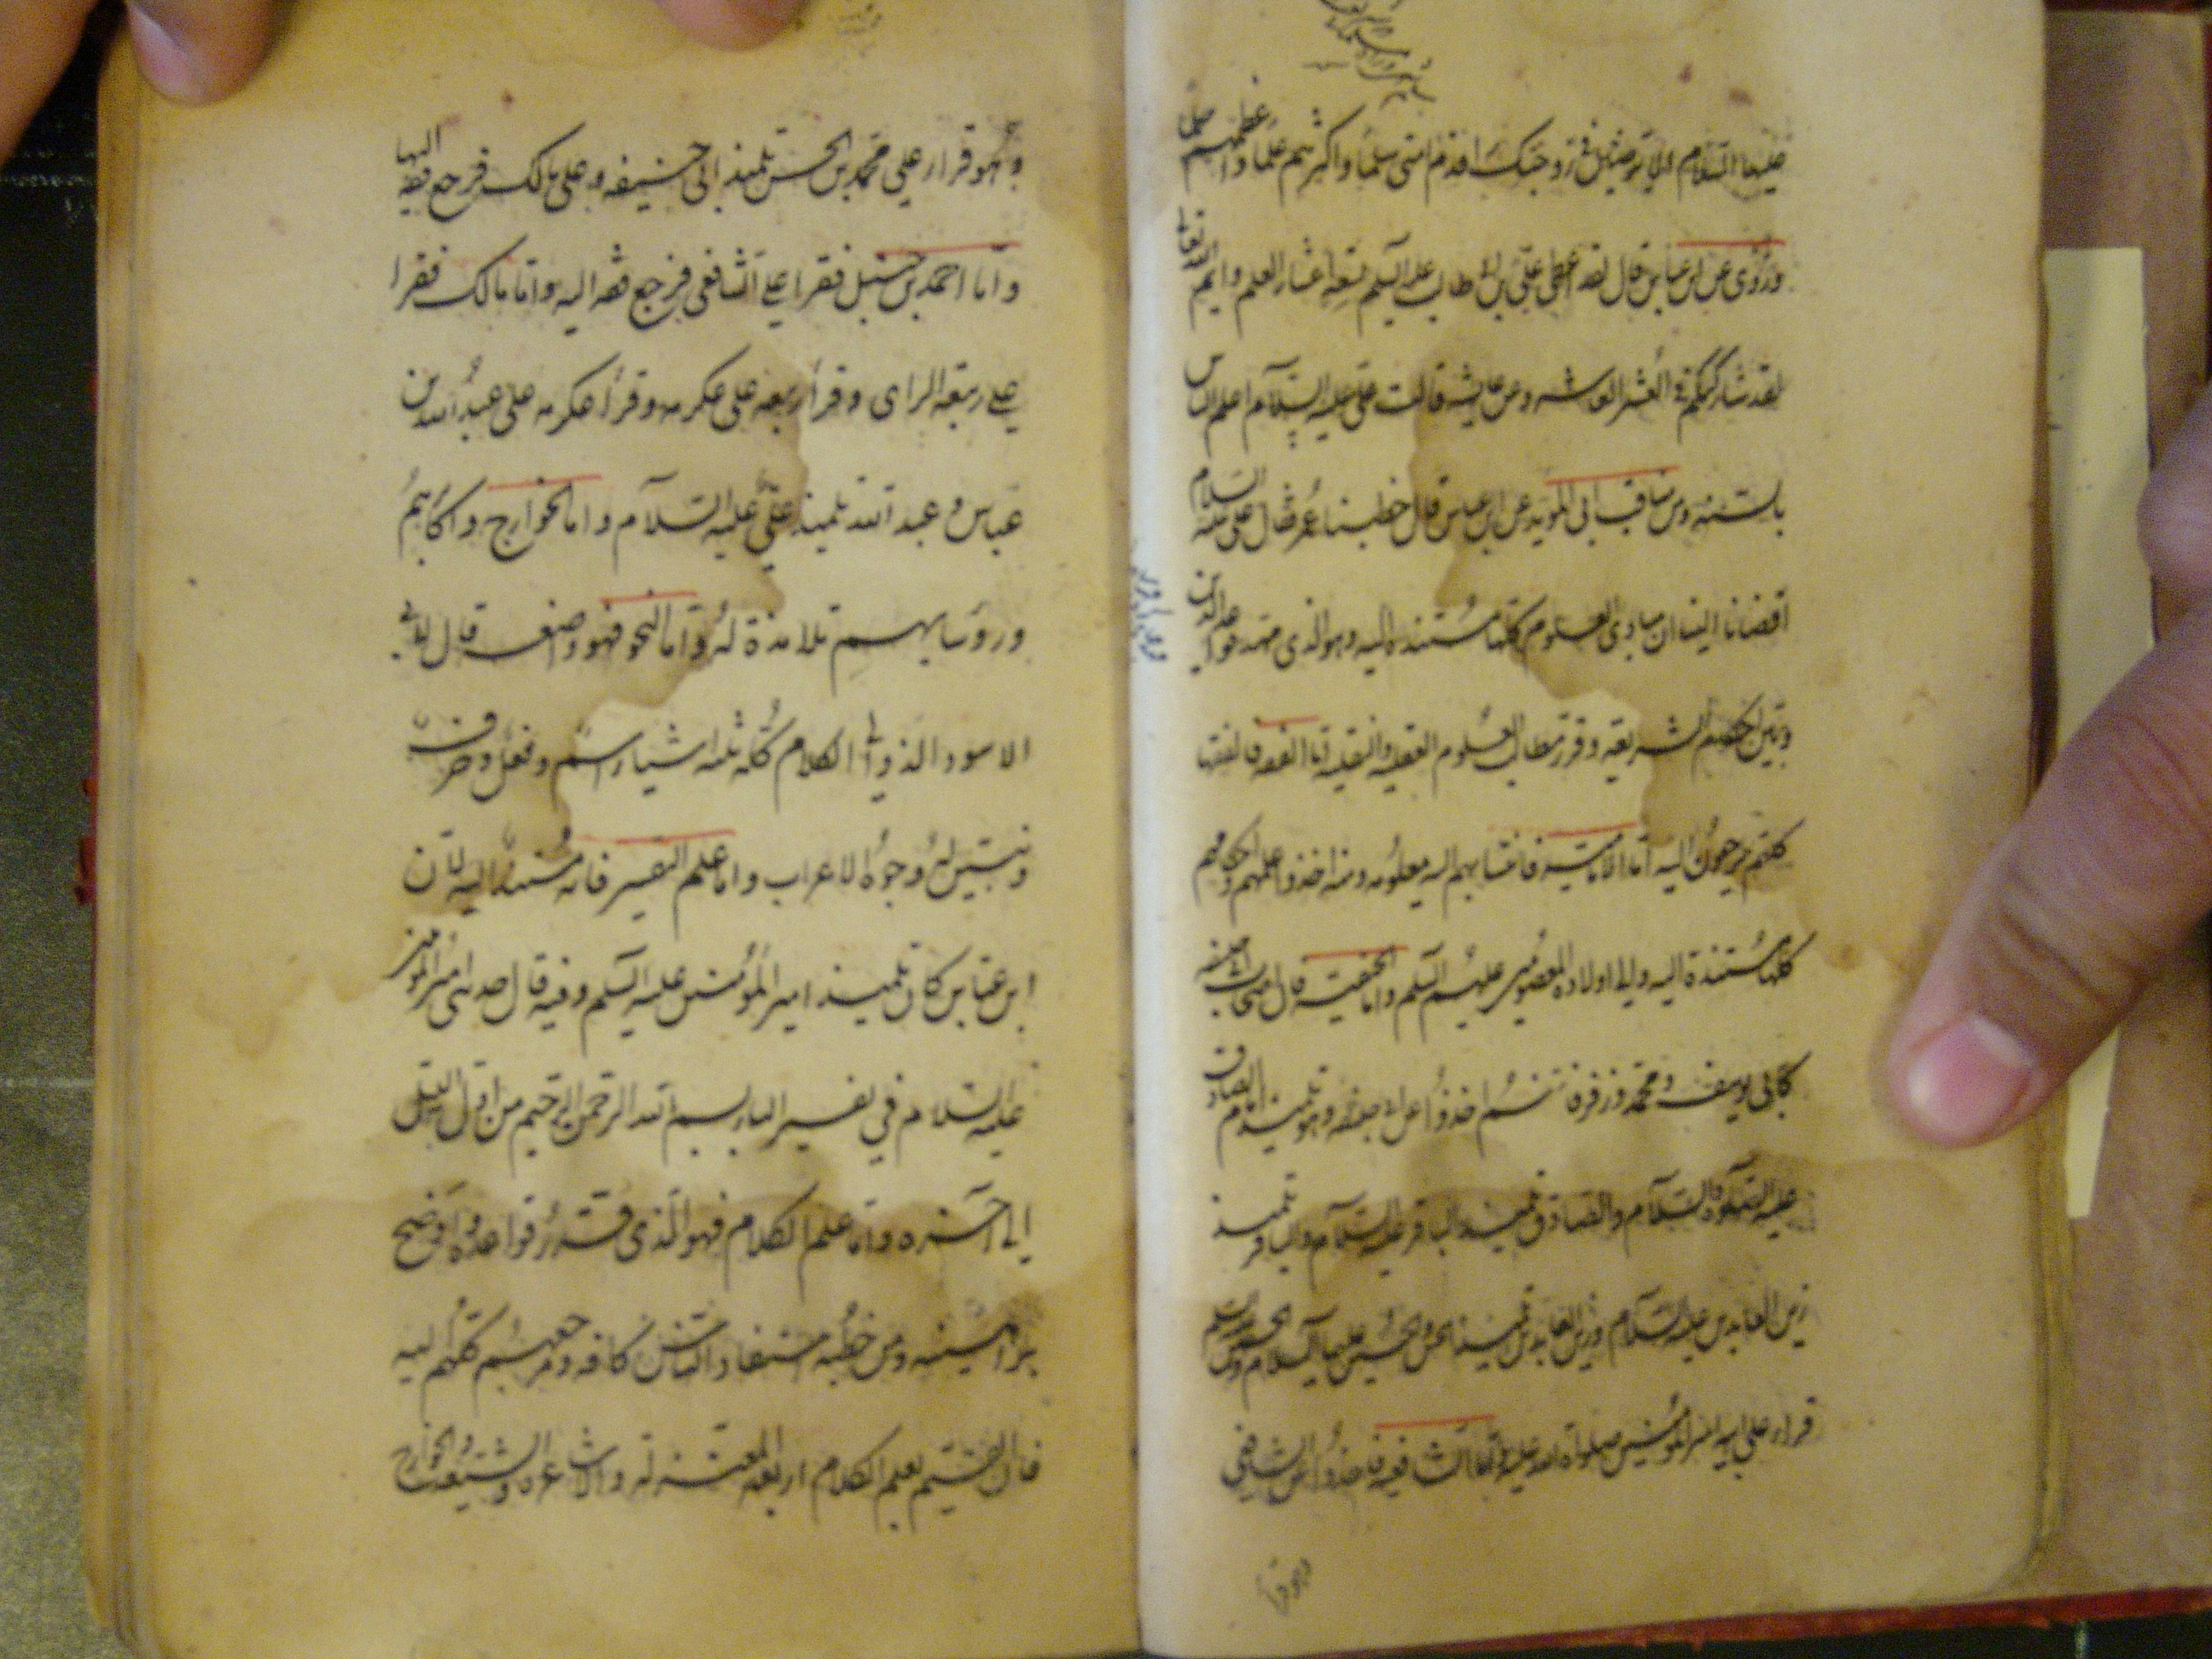 عليها السلام الا ترضين اني زوجتك اقدم امتي سلما واكثرهم علما واعظمهم حلما
وروى عن ابن عباس قال لقد اعطي علي بن ابي طالب عليه السلم تسعة اعشار العلم وايم الله
لقد شارككم في العشر العاشر وعن عايشه قالت علي عليه السلام اعلم الناس
بالسنه ومن مناقب ابي المويد عن ابن عباس قال خطبنا عمر فقال علي عليه السلام
اقضانا ايضا ان مبادي العلوم كلها مستندة اليه وهو الذي مهد قواعد الدين
وبين احكام الشريعه وقرر مطالب العلوم العقليه والنقليه اما الفقه فالفقها
كلهم يرجعون اليه اما الاماميه فانتسابهم اليه معلومه ومنه اخذوا علمهم واحكامهم
كلها مستندة اليه والى اولاده المعصومين عليهم السلم واما الحنفيه فان اصحاب ابي حنيفه
كابي يوسف ومحمد وزفر فانهم اخذوا عن ابي حنيفه وهو تلميذ الامام الصادق
عليه الصلوة والسلام والصادق تلميذ الباقر عليه السلام والباقر تلميذ
زين العابدين عليه السلام وزين العابدين تلميذ الحسن والحسين عليهما السلام
قراء علي ابيه امير المؤمنين صلواة الله عليه واما الشافعيه فاخذوا عن الشافعي
وهو قراء علي محمد بن الحسن تلميذ ابي حنيفه وعلى مالك فرجع فقهه اليها
واما احمد بن حنبل فقرا علي الشافعي فرجع فقهه اليه واما مالك فقرا
علي ربيعة الراى وقرأ ربيعه على عكرمه وقرأ عكرمه على عبد الله بن
عباس و عبد الله تلميذ علي عليه السلام واما الخوارج واكابرهم
وروسايهم تلامذة له واما النحو فهو واضعه قال لابي
الاسود الدؤلي الكلام كله ثلثه اشياء اسم وفعل وحرف
وتبين له وجوه الاعراب واما علم التفسير فانه مستند اليه لان
ابن عباس كان تلميذ امير المؤمنين عليه السلم وفيه قال حدثني امير المومنين
عليه السلام في تفسير الباء بسم الله الرحمن الرحيم من اول الليل
الى آخره واما علم الكلام فهو الذي قرر قواعده واوضح
براهينه ومن خطبه استفاد الناس كافه ومرجعهم كلهم اليه
فان القيم بعلم الكلام اربعه المعتزله والاشاعره والشيعه والخوارج